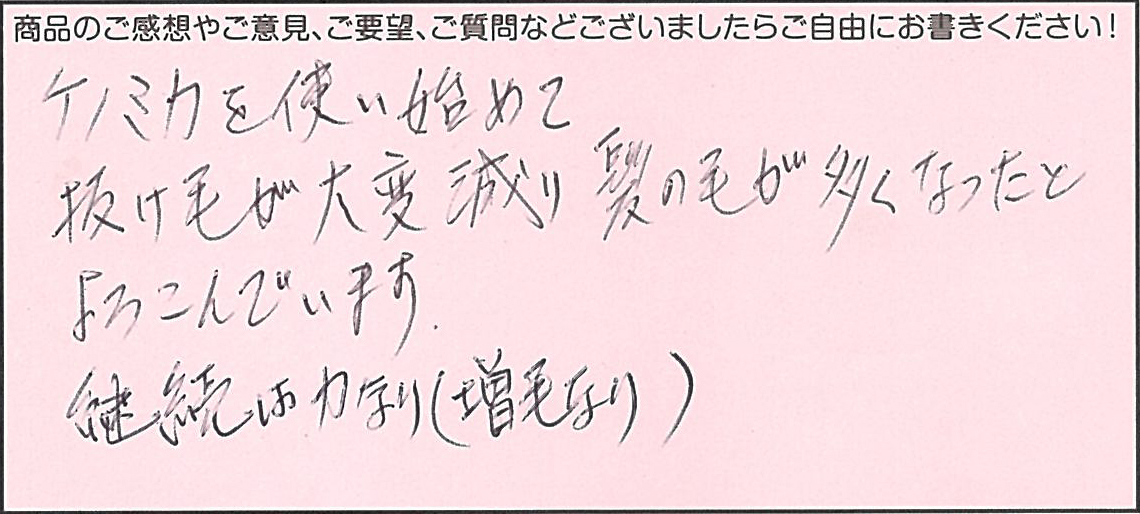 商品のご感想やご意見、ご要望、ご質問などございましたらご自由にお書きください!
ケノミカを使い始めて
抜け毛が大変減り髪の毛が多くなったと
よろこんでいます.
継続は力なり(増毛なり)